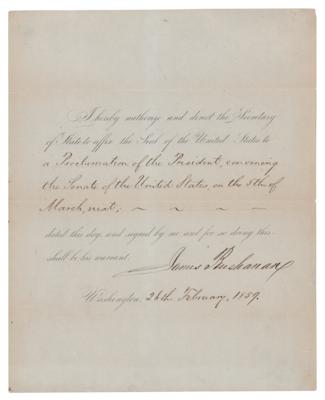 I hereby authorize and direct the Secretary
of State to affix the Seal of the United States to
a Proclamation of the President, convening
the Senate of the United States, on the 5th of
March, next; ~ ~ ~ ~
dated this day, and signed by me and for so doing this
shall be his warrant.
James Buchanan
Washington, 26th February, 1859.